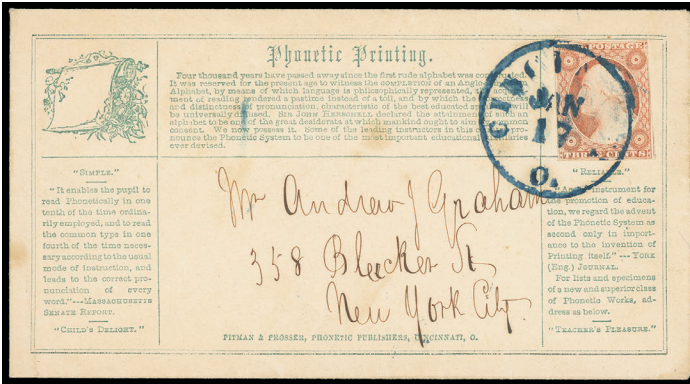 Phonetic Printing.
Four thousand years have passed away since the first rude alphabet was constructed.
It was reserved for the present age to witness the COMPLETION of an Anglo-
Alphabet, by means of which language is philosophically represented, the
ment of reading rendered a pastime instead of a toil, and by which the
and distinctness of pronunciation, characteristic of the best educated speakers will
be universally diffused. SIR JOHN HERSCHELL declared the attainment of such an
alphabet to be one of the great desiderata at which mankind ought to aim by common
consent. We now possess it. Some of the leading instructors in this pro-
nounce the Phonetic System to be one of the most important educational
ever devised.
POSTAGE
THREE CENTS
CINCIN
JAN
O.
"SIMPLE."
"It enables the pupil to
read Phonetically in one
tenth of the time ordina-
rily employed, and to read
the common type in one
fourth of the time neces-
sary according to the usual
mode of instruction, and
leads to the correct pro-
nunciation of every
word."---MASSACHUSETTS
SENATE REPORT.
"CHILD'S DELIGHT."
Mr Andrew J Graham
358 Bleecker St
New York City.
"RELIABLE."
instrument for
the promotion of educa-
tion, we regard the advent
of the Phonetic System as
second only in import-
ance to the invention of
Printing itself."---YORK
(Eng.) JOURNAL.
For lists and specimens
of a new and superior class
of Phonetic Works, ad-
dress as below.
"TEACHER'S PLEASURE."
PITMAN & PROSSER, PHONETIC PUBLISHERS, CINCINNATI, O.